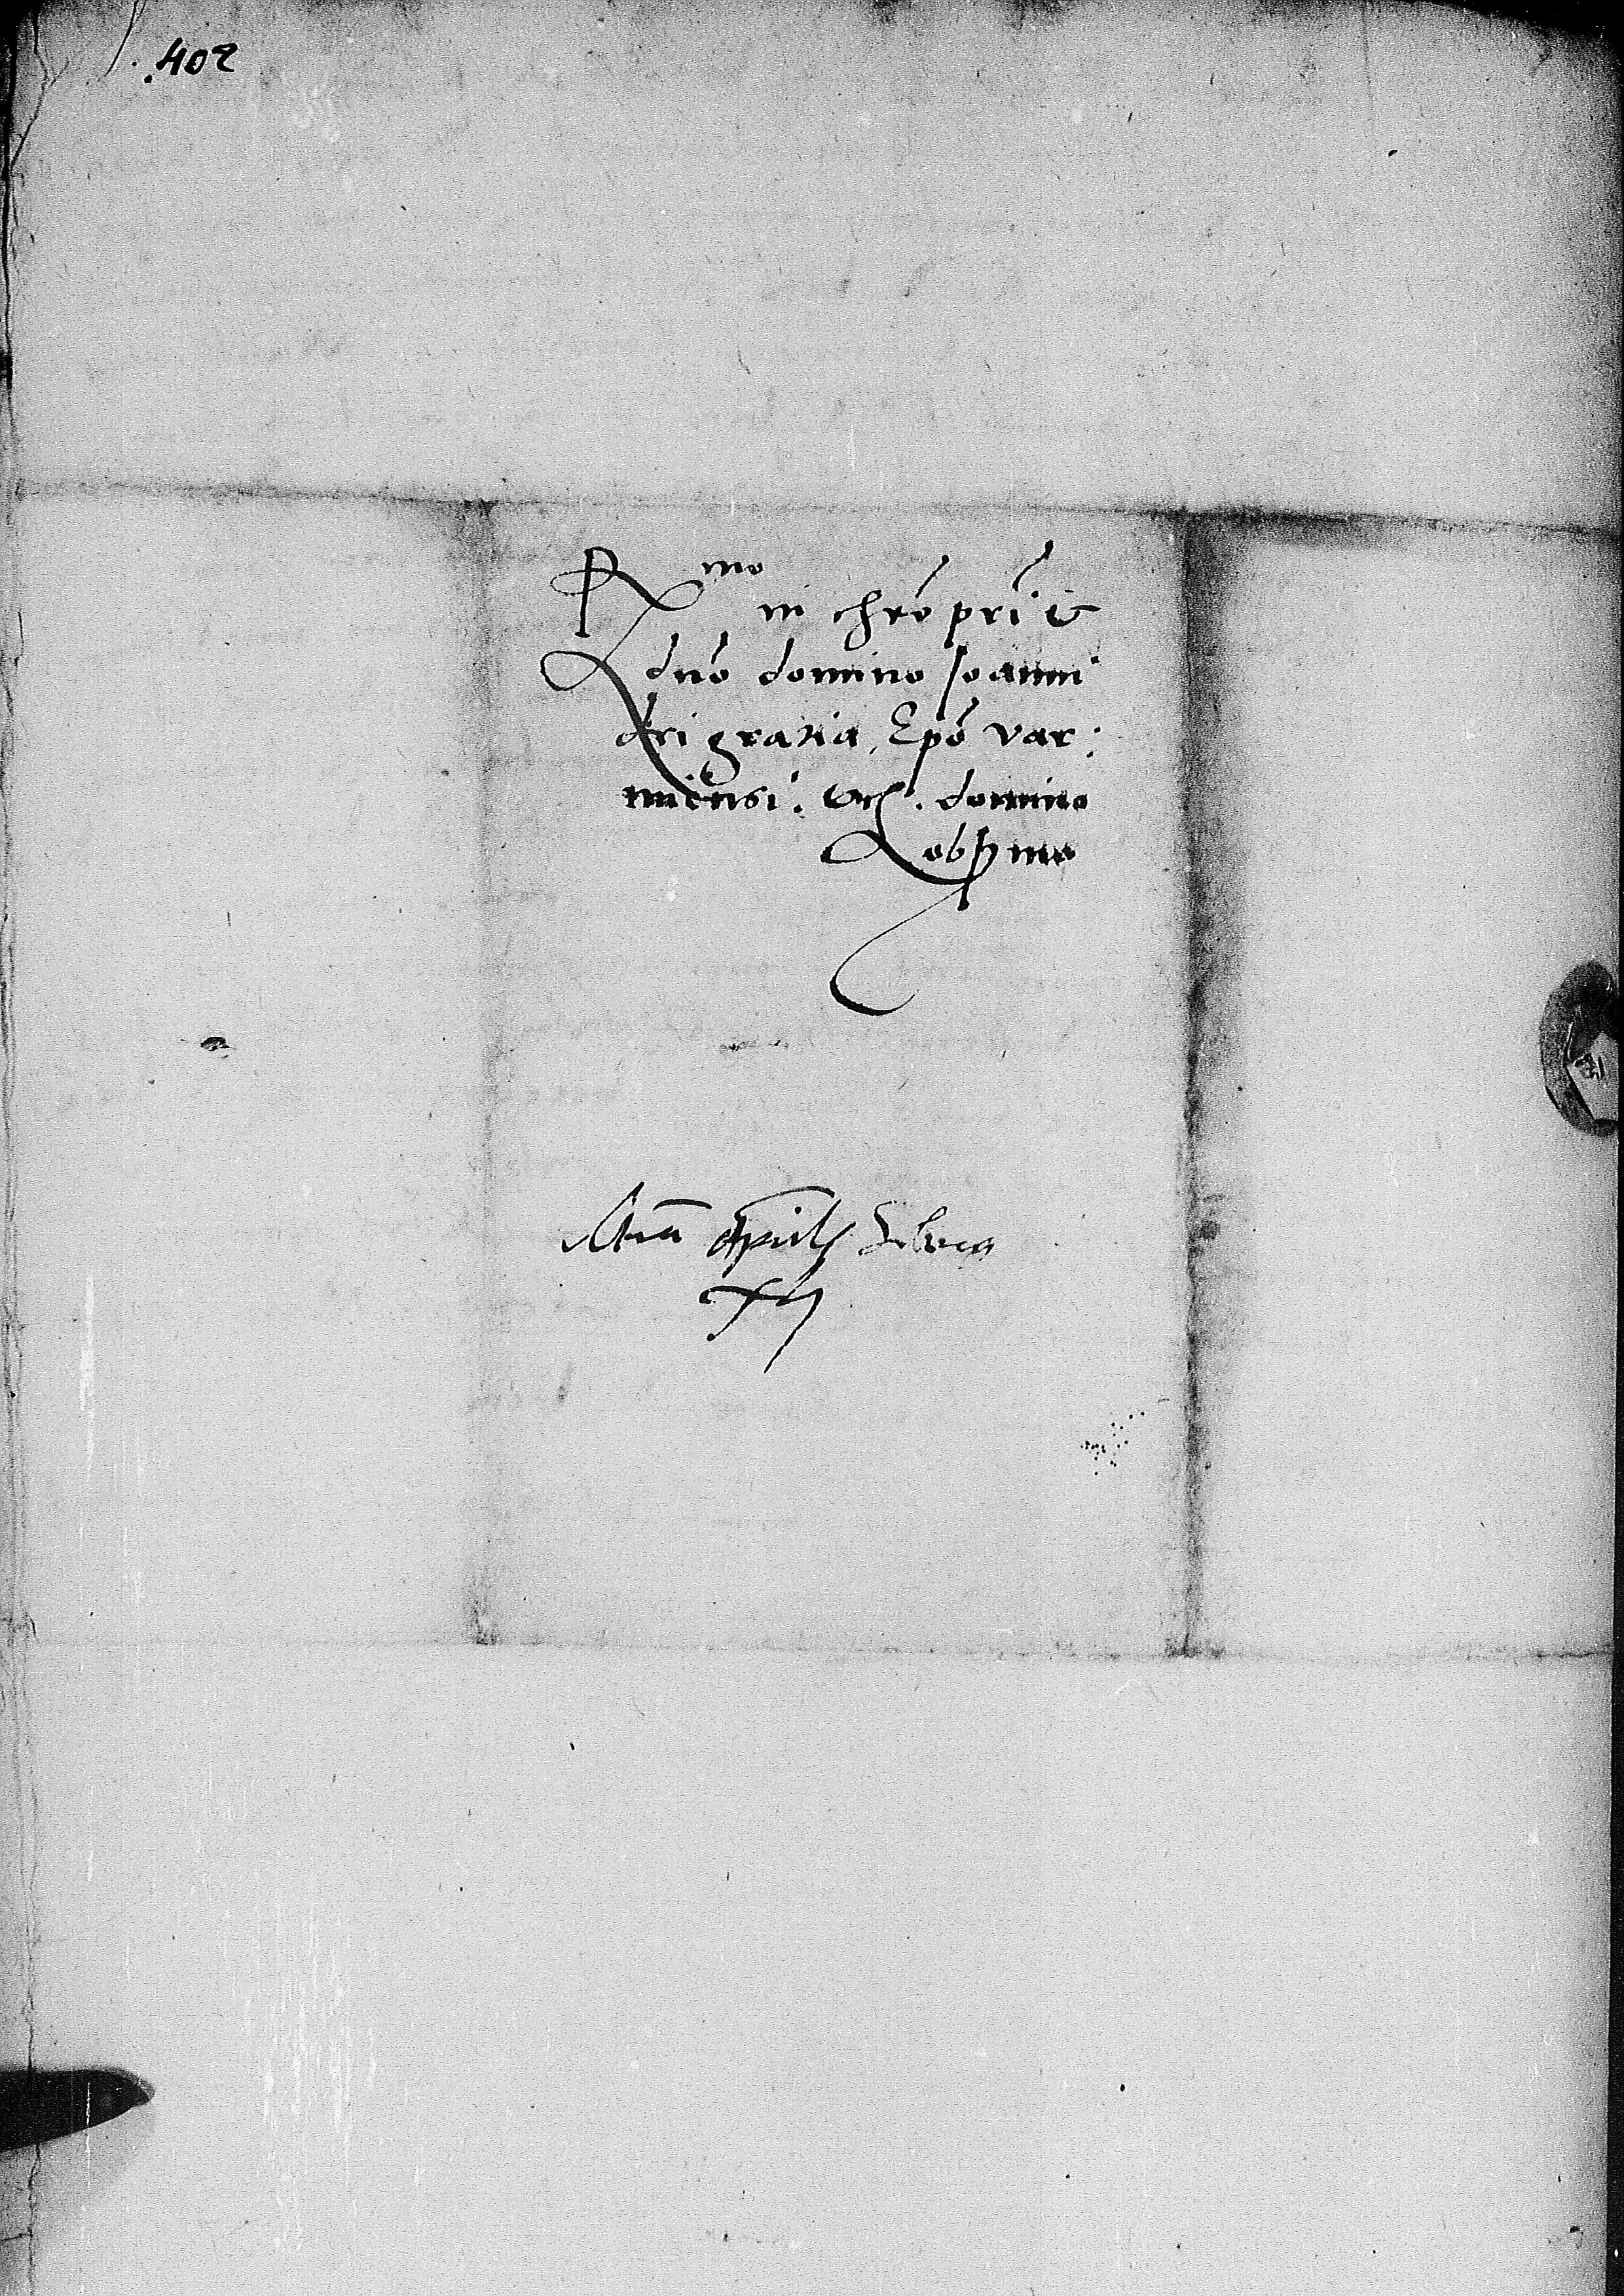 402
R mo in chro pri &
dno domino Joanni
dei gratia Epo var:
miensi. etc. domino
obsermo
Aprilis